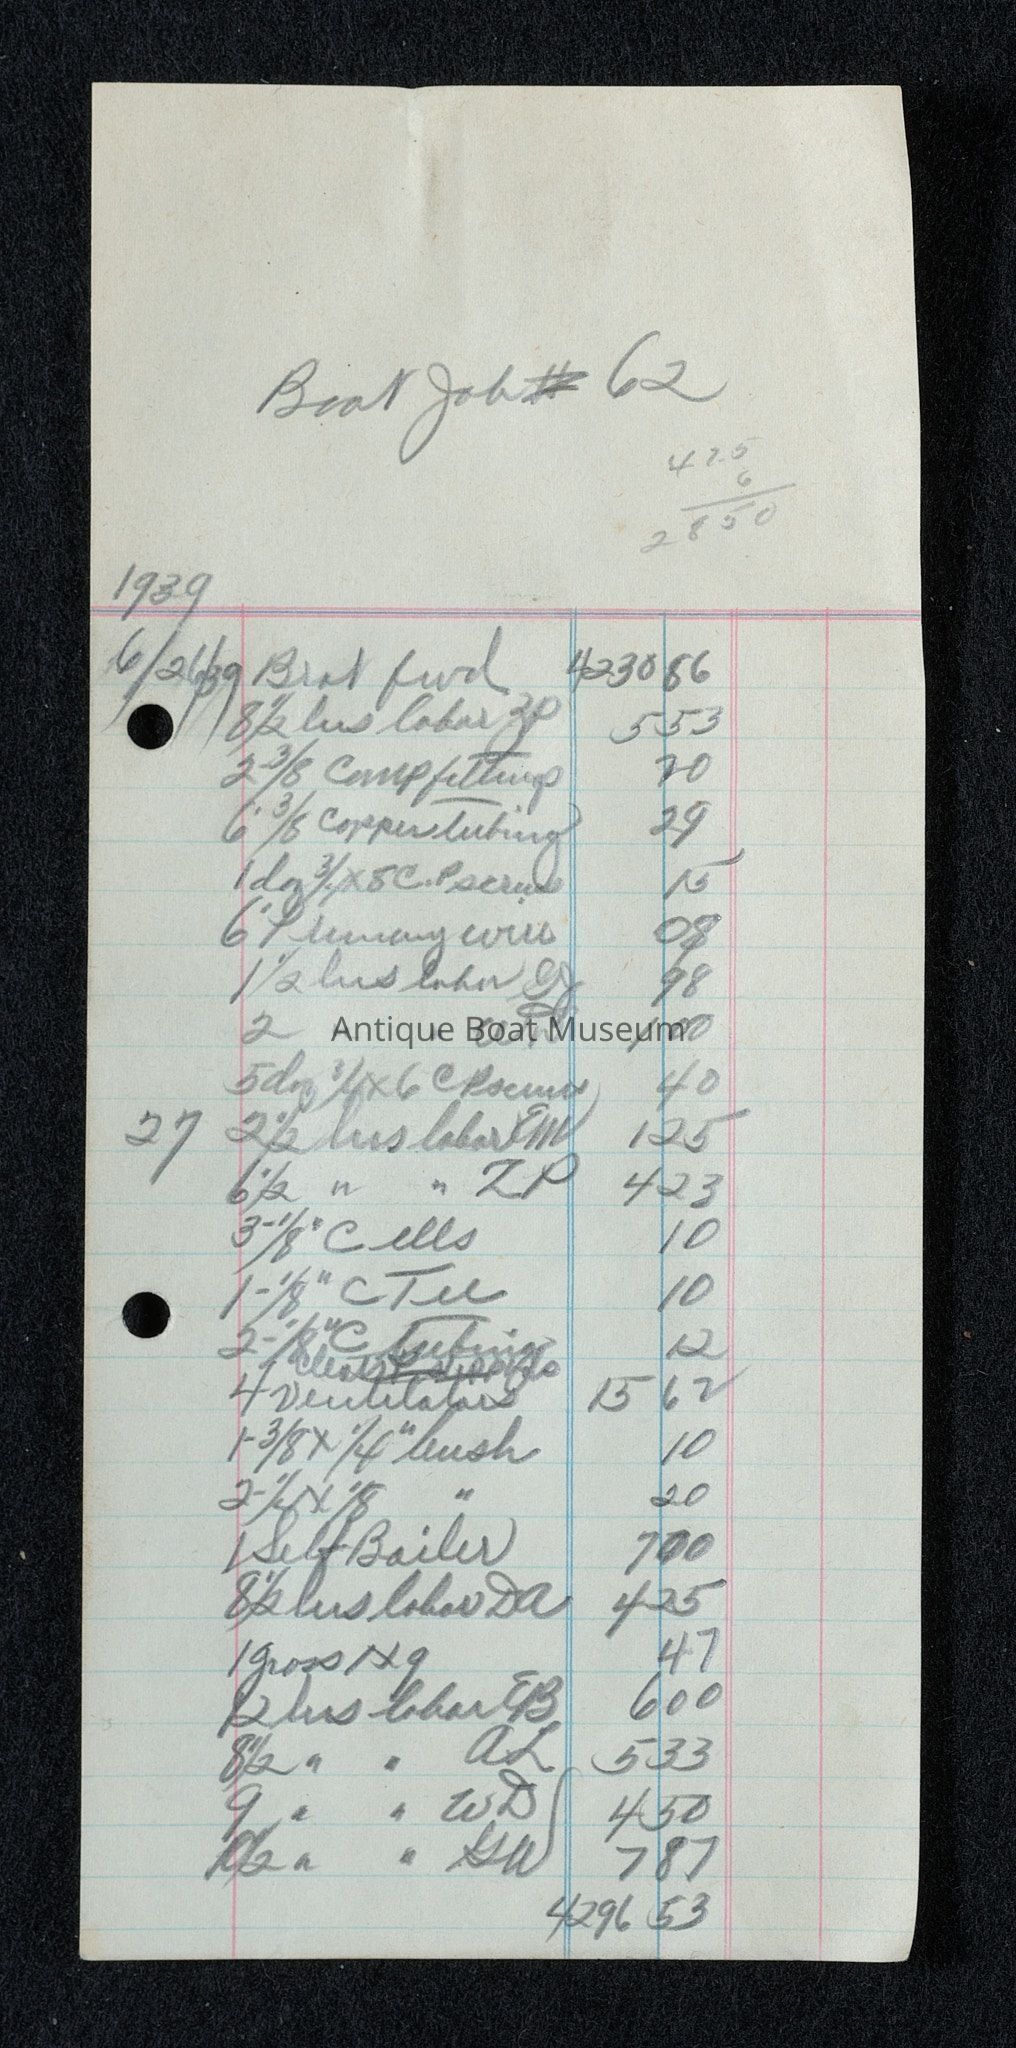 Boat Job # 62
475
6
2850
1939
6/26/39 Brot fwd 4230 86
8 1/2 hrs labor ZP 5 53
2-3/8 Comp fittings 70
6" 3/8 Copper tubing 29
1 doz 3/4 x 5 C.P screws 15
6" Primary wire 08
1 1/2 hrs labor 98
2 " " 1 00
5 doz 3/4 x 6 C P screws 40
27 2 1/2 hrs labor EM 1 25
6 1/2 " " ZP 4 23
3-1/8" C ells 10
1-1/8" C Tee 10
2-1/8" C tubing 12
4 Ventilators 15 62
1-3/8 x 1/4" bush 10
2-1/4 x 1/8 " 20
1 Self Bailer 7 00
8 1/2 hrs labor DA 4 25
1 gross 1 x 9 47
12 hrs labor EB 6 00
8 1/2 " " AL 5 33
9 " " WD 4 50
" " GW 7 87
4296 53
Antique Boat Museum